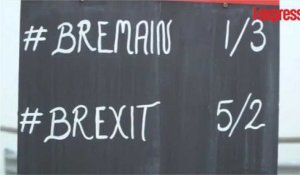 # BREMAIN 1/3
# BREXIT 5/2